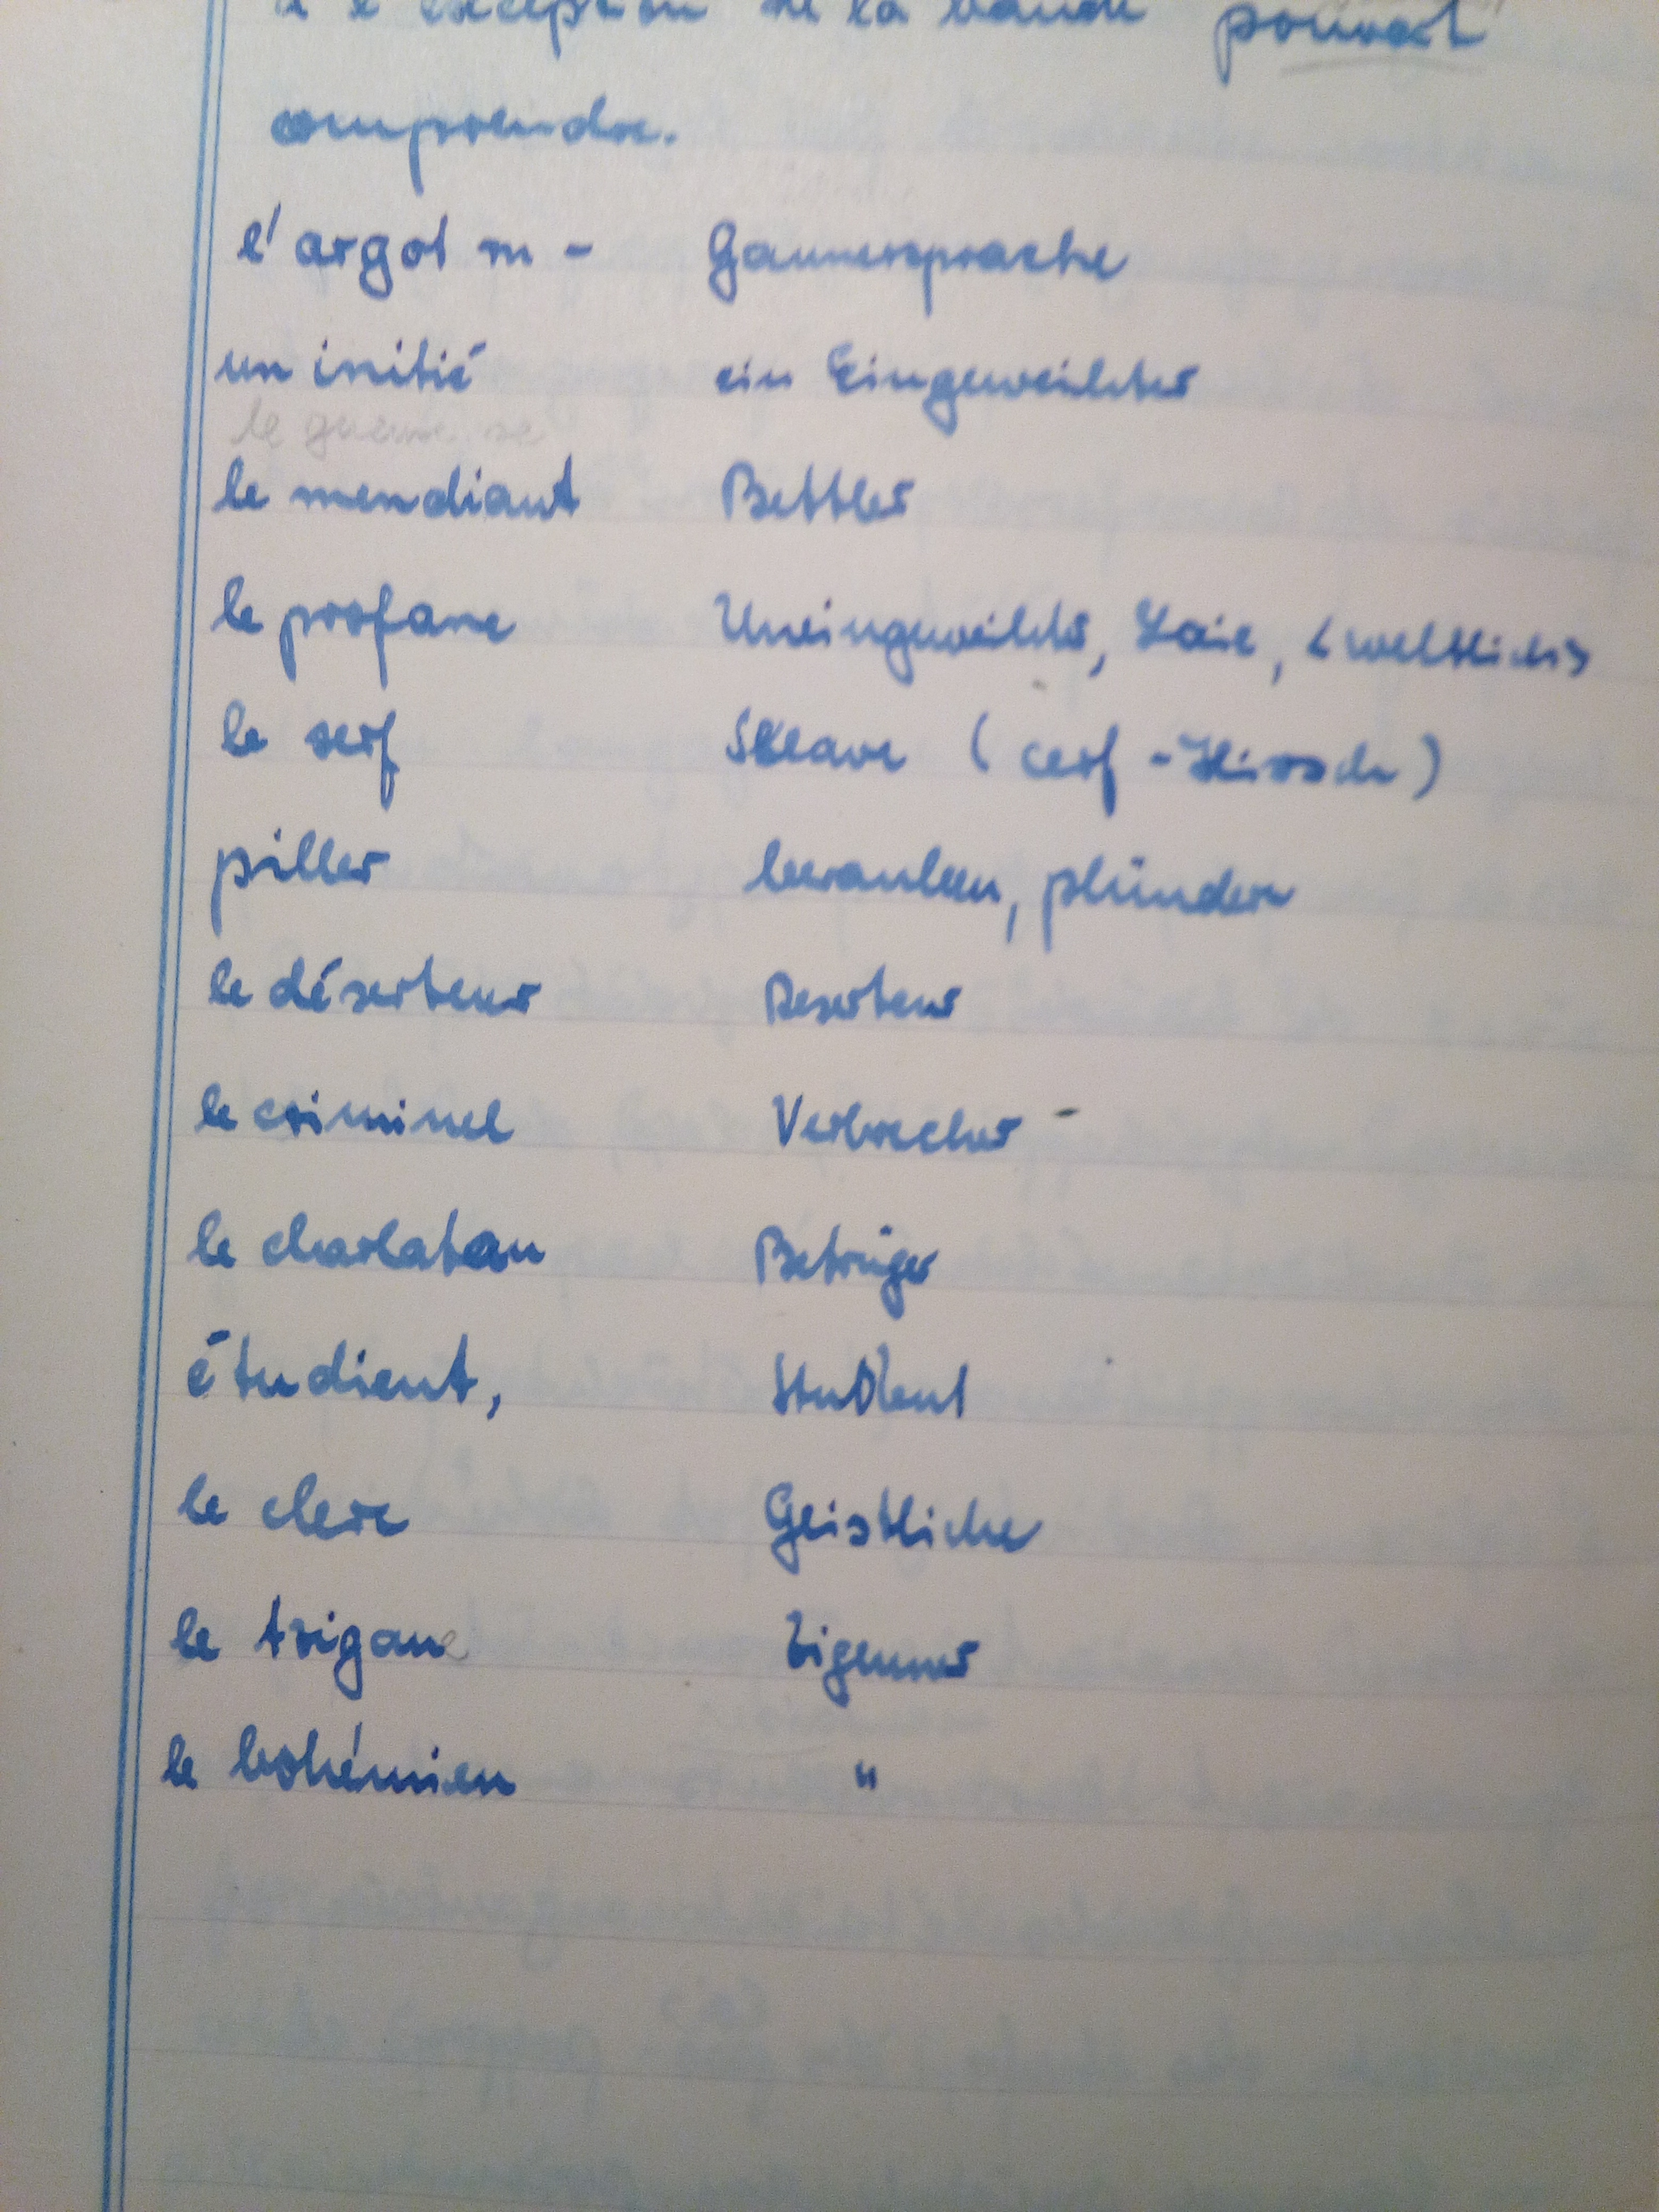 à l'exception de la bande pouvait
comprendre.
l'argot m - Gaunersprache
un initié ein Eingeweihter
le mendiant Bettler
le profane Uneingeweihter, Laie, (weltlich)
le serf Sklave (cerf - Hirsch)
piller berauben, plündern
le déserteur Deserteur
le criminel Verbrecher -
le charlatan Betrüger
étudient, Student
le clerc Geistliche
le tsigane Zigeuner
le bohémien "